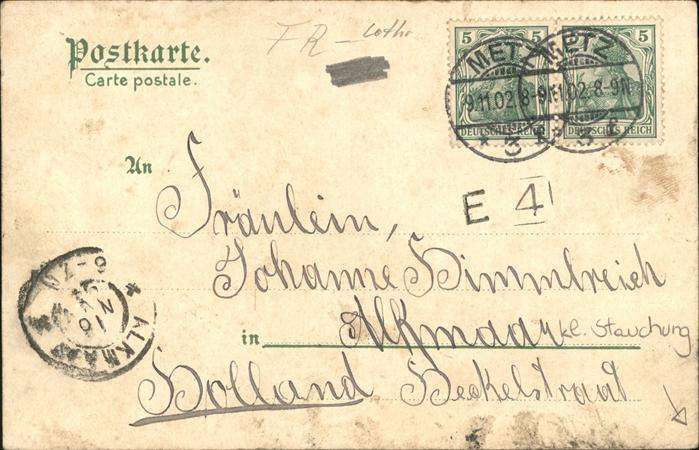 FR - Lothr
Postkarte.
Carte postale.
5 5
5 5
METZ
9.11.02. 8-9N.
* 3 f
METZ
.11.02. 8-9N.
* 3 f
DEUTSCHES REICH
DEUTSCHES REICH
An
E 4
Fräulein,
Johanne Himmlreich
in Alkmaar kl. Stauchung
Holland Beckelstraat
ALKMAAR